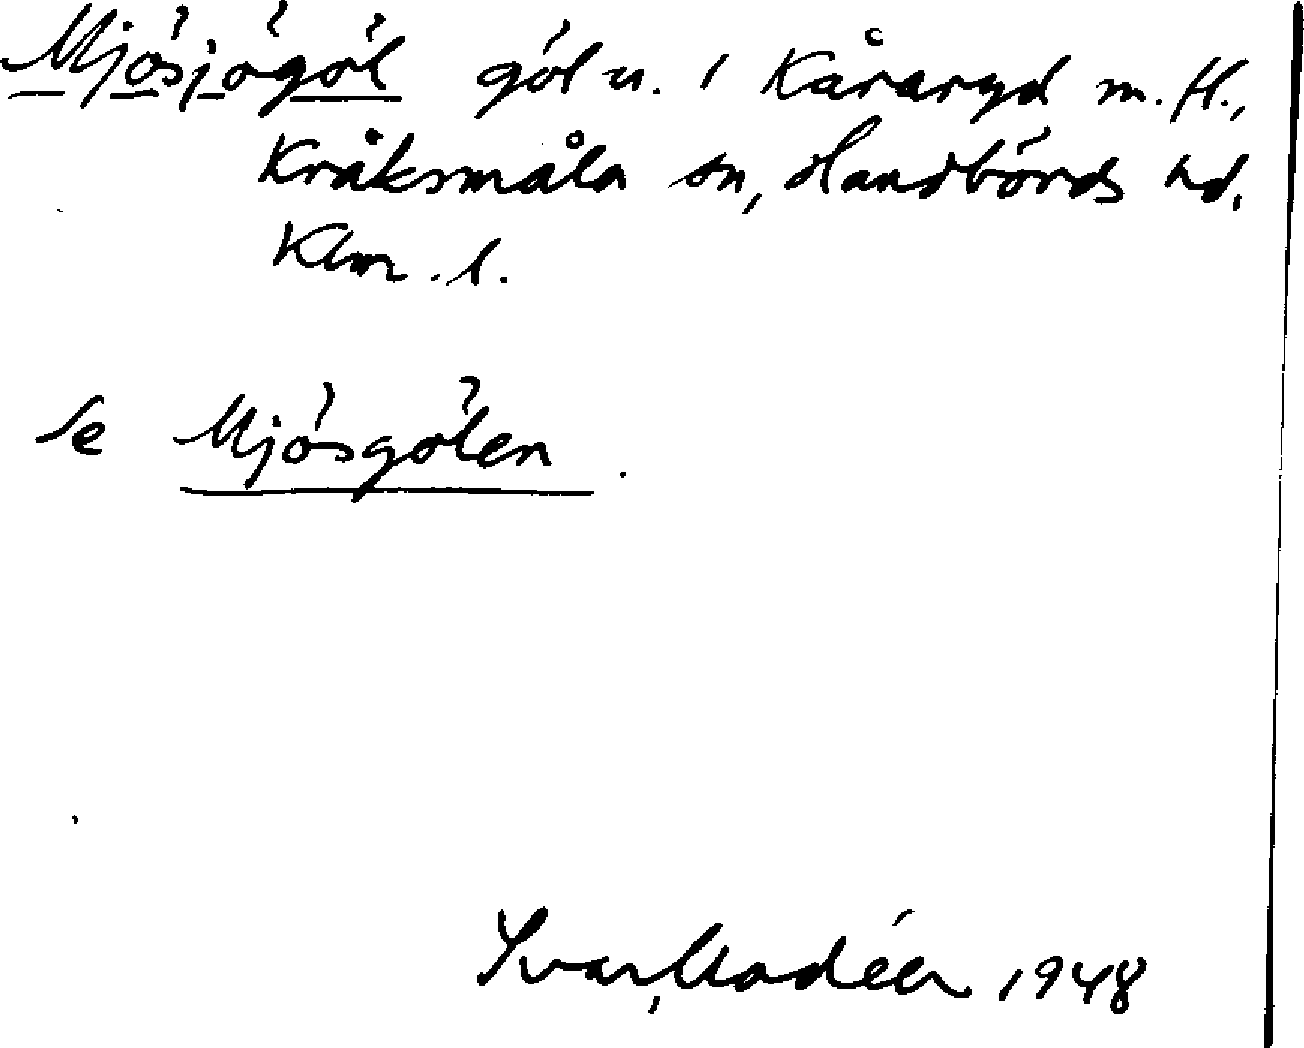 Mjösjögöl göl n. i Kåraryd m.fl.,
Kråksmåla sn, Handbörds hd.
Klm. l.
Se Mjösgölen.
Ivar Modéer 1948